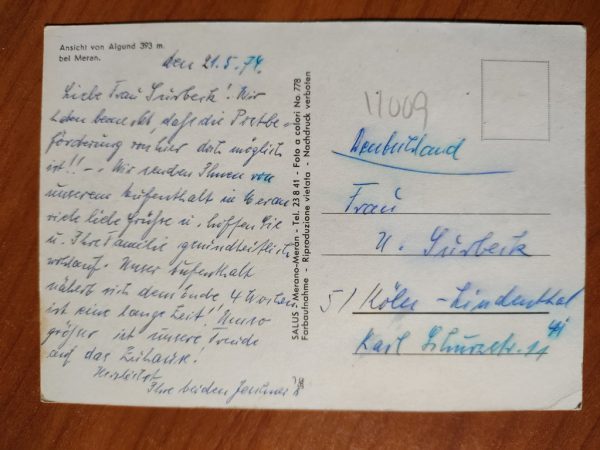 Ansicht von Algund 393 m.
bei Meran.
den 21.5.74.
Liebe Frau Surbeck! Wir
haben bemerkt, daß die Postbe-
förderung von hier doch möglich
ist!! - Wir senden Ihnen von
unserem Aufenthalt in Meran
viele liebe Grüße u. hoffen Sie
u. Ihre Familie gesundheitlich
wohlauf. Unser Aufenthalt
nähert sich dem Ende 4 Wochen
ist eine lange Zeit! Umso
größer ist unsere Freude
auf das Zuhause!
Herzlichst
Ihre beiden
SALUS - Merano-Meran - Tel. 23841 - Foto a colori No. 778
Farbaufnahme - Riproduzione vietata - Nachdruck verboten
17009
Deutschland
Frau
U. Surbeck
51 Köln-Lindenthal
Karl Schurzstr. 11